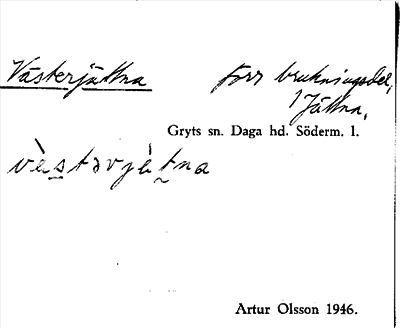 Västerjättna förr brukningsdel,
i Jättna,
Gryts sn. Daga hd. Söderm. l.
vèstərjètna
Artur Olsson 1946.